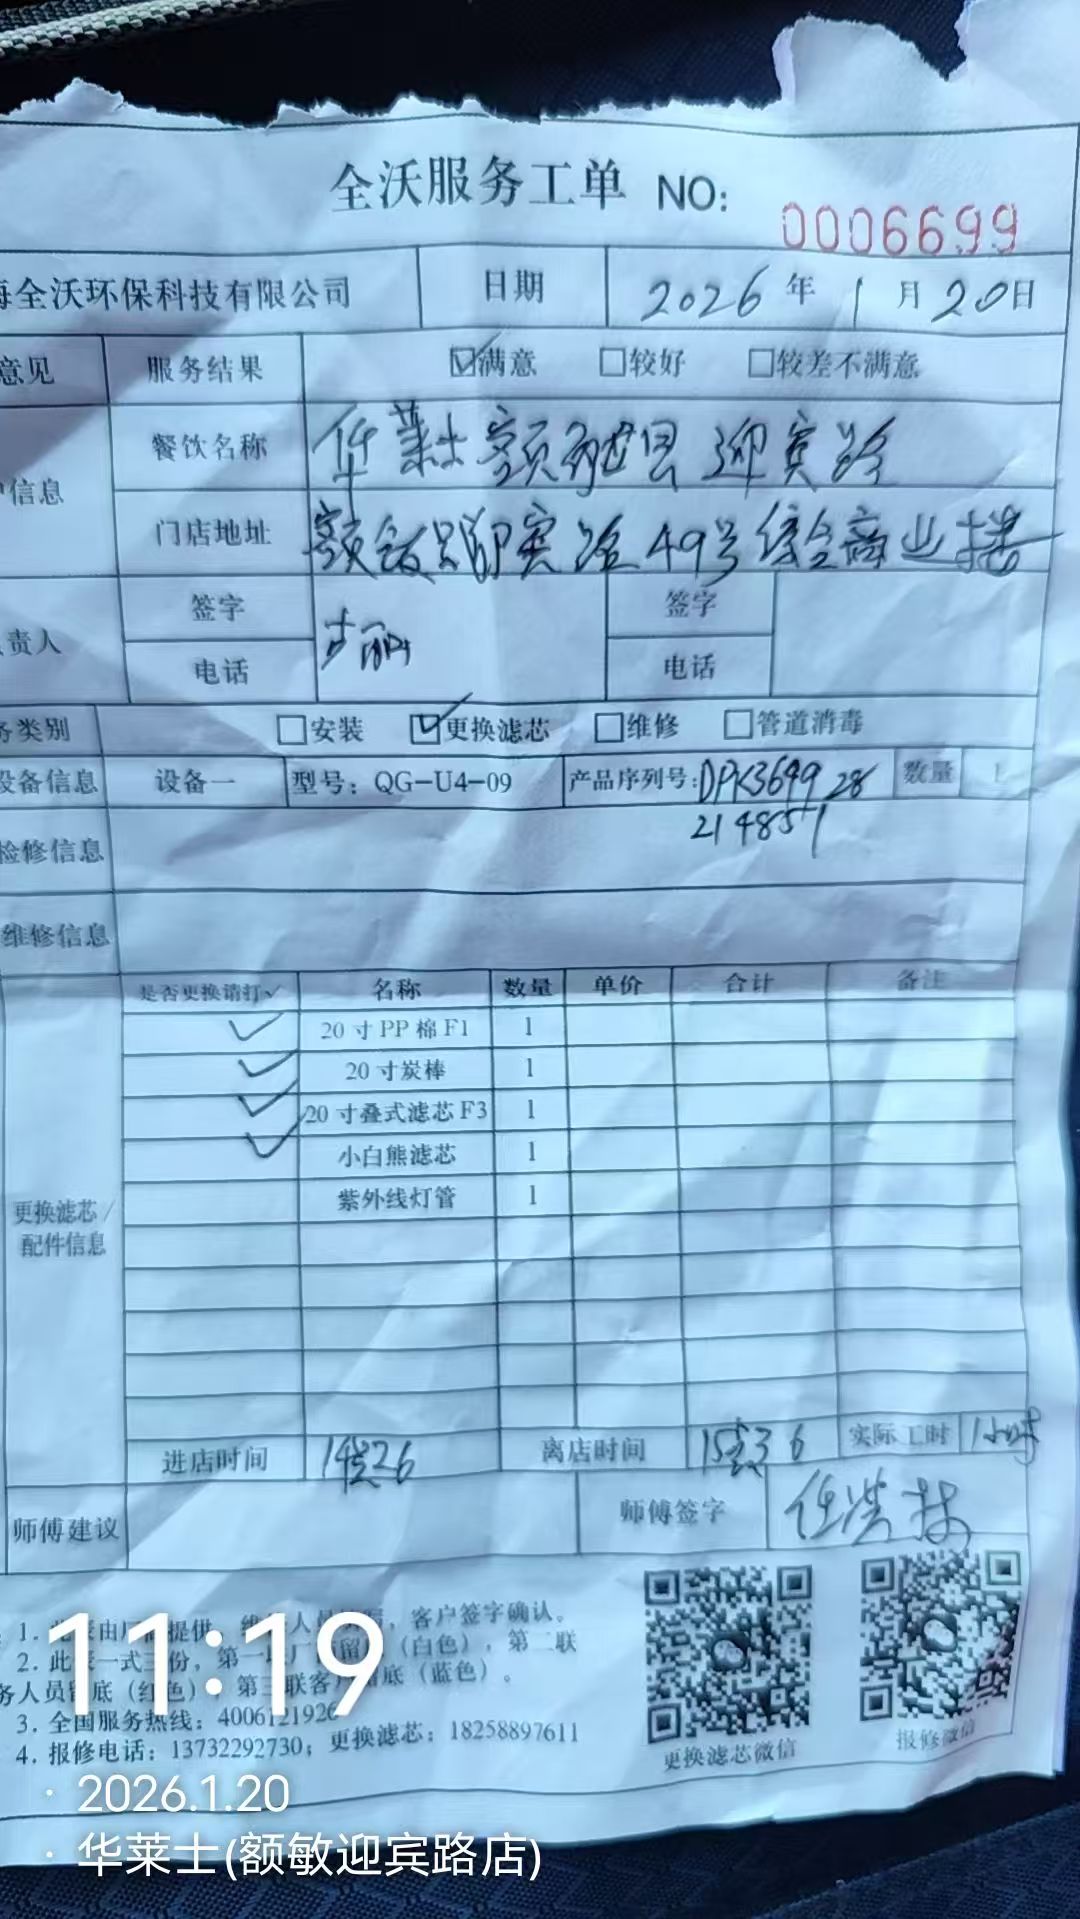 全沃服务工单 NO: 0006699
海全沃环保科技有限公司 日期 2026年1月20日
意见 服务结果 ☑满意 □较好 □较差不满意
信息 餐饮名称 华莱士额敏县迎宾路
门店地址 额敏县迎宾路49号综合商业楼
责人 签字 签字
电话 电话
务类别 □安装 ☑更换滤芯 □维修 □管道消毒
设备信息 设备一 型号：QG-U4-09 产品序列号：DPK369928 数量 1
214851
检修信息
维修信息
是否更换请打✓ 名称 数量 单价 合计 备注
✓ 20寸PP棉F1 1
✓ 20寸炭棒 1
✓ 20寸叠式滤芯F3 1
✓ 小白熊滤芯 1
紫外线灯管 1
更换滤芯/
配件信息
进店时间 14点26 离店时间 15点36 实际工时 1小时
师傅建议 师傅签字
1. 此表由厂商提供，客户签字确认。
2. 此表一式三份，第一联厂商留底（白色），第二联
务人员留底（红色），第三联客户留底（蓝色）。
3. 全国服务热线：4006121926
4. 报修电话：13732292730；更换滤芯：18258897611
更换滤芯微信 报修微信
11:19
· 2026.1.20
· 华莱士(额敏迎宾路店)